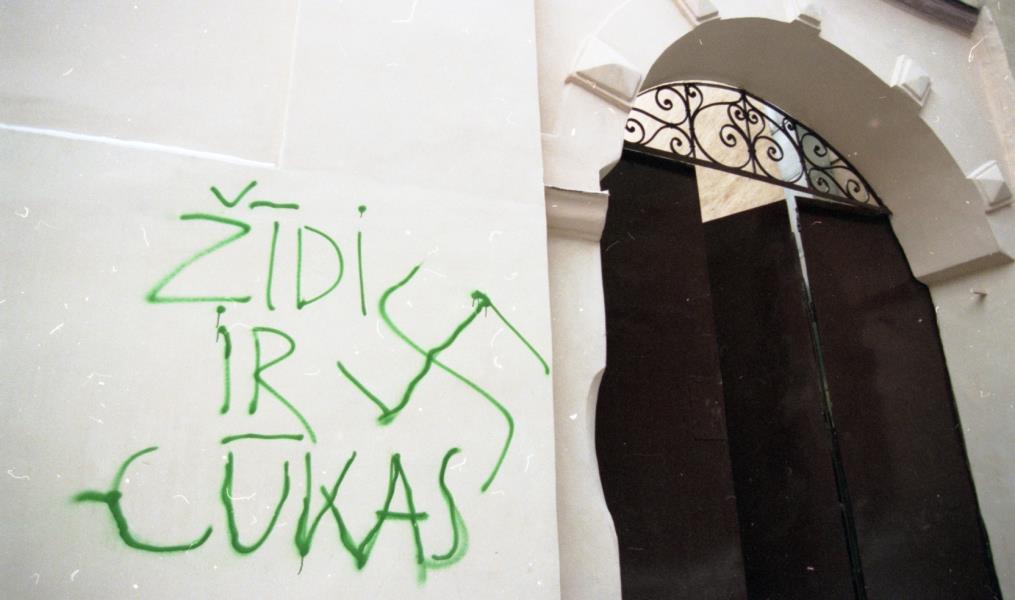 ŽĪDI
IR
CŪKAS